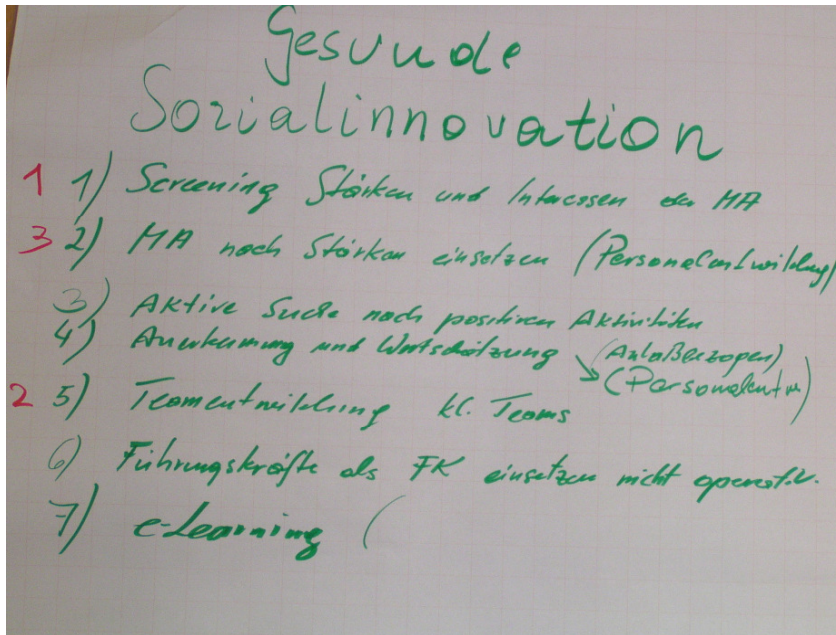 Gesunde
Sozialinnovation
1 1) Screening Stärken und Interessen der MA
3 2) MA nach Stärken einsetzen (Personalentwicklung)
3) Aktive Suche nach positiven Aktivitäten
4) Anerkennung und Wertschätzung (Anlaßbezogen)
(Personalentw)
2 5) Teamentwicklung kl. Teams
6) Führungskräfte als FK einsetzen nicht operativ.
7) e-Learning (